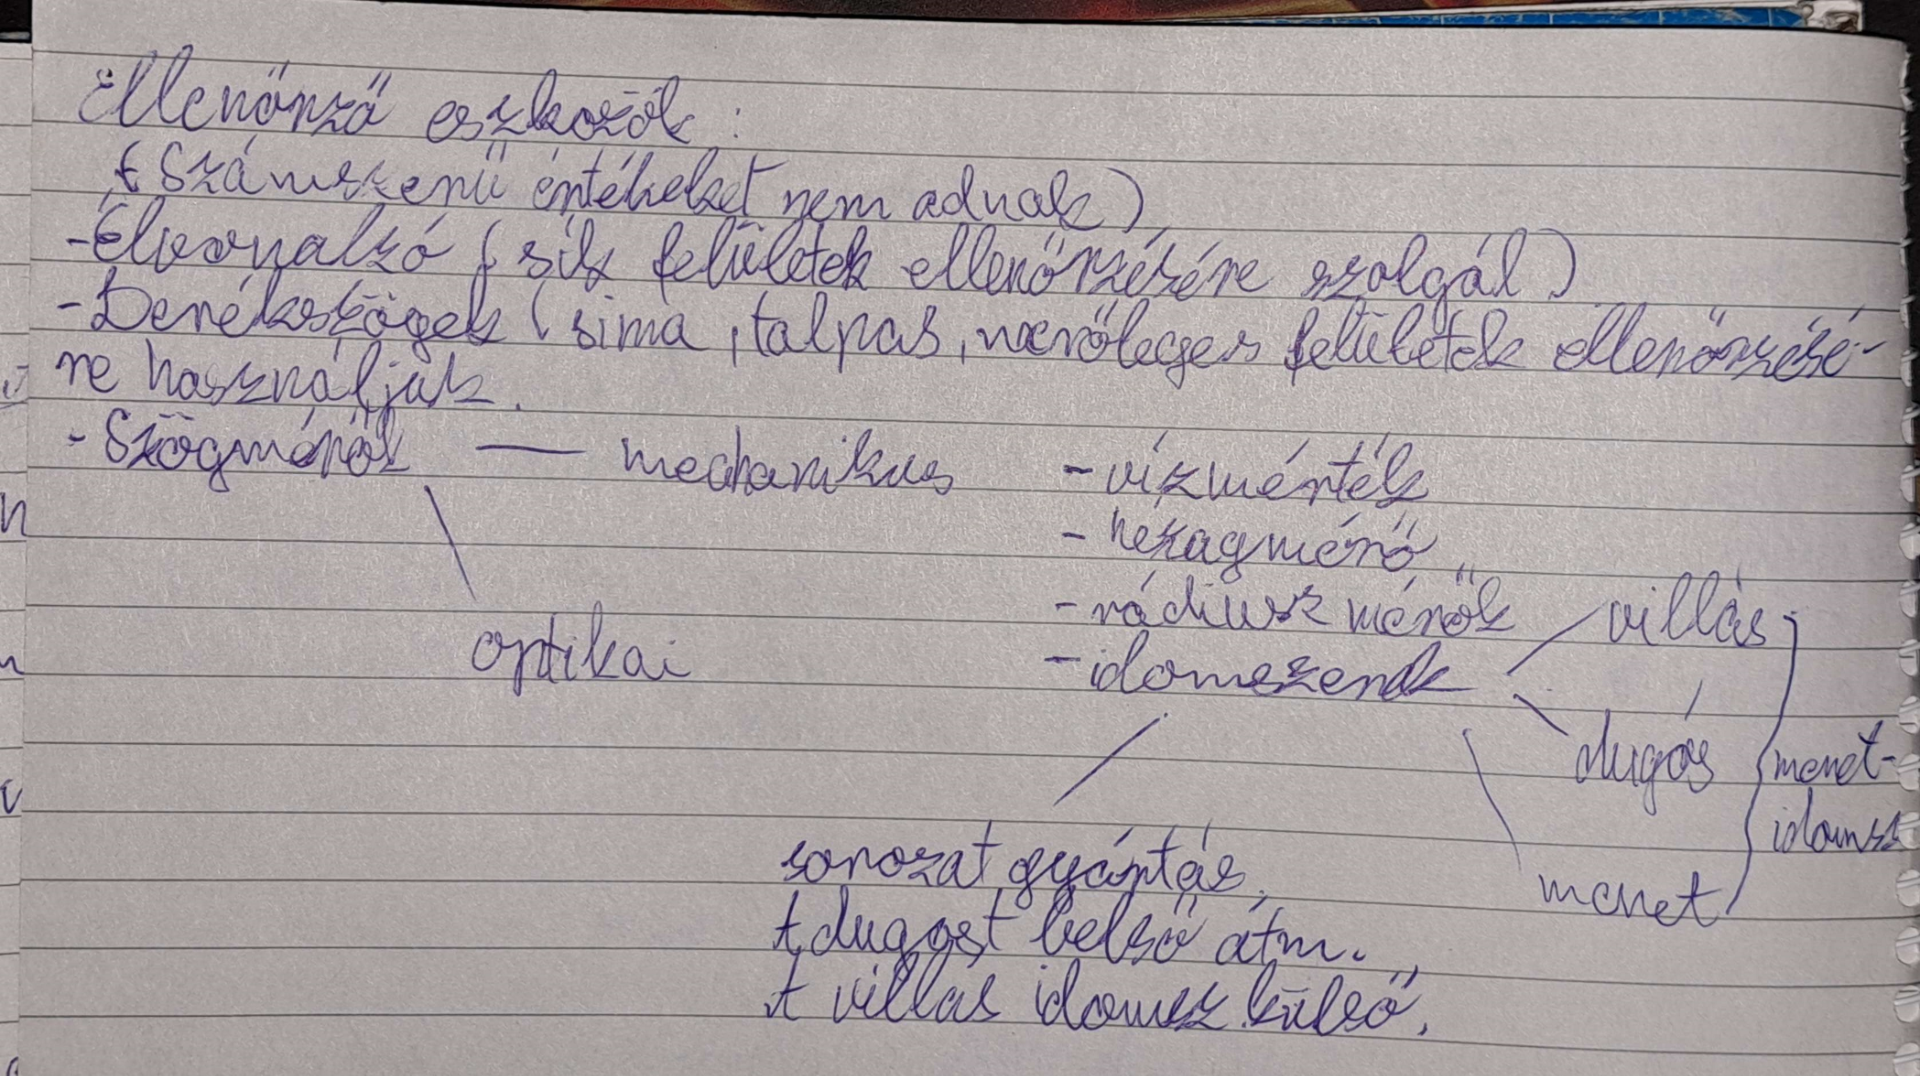 Ellenőrző eszközök:
(Számszerű értékeket nem adnak)
-Élvonalzó (sík felületek ellenőrzésére szolgál)
-Derékszögek (sima, talpas, merőleges felületek ellenőrzésé-
re használjuk.
- Szögmérők — mechanikus
optikai
- vízmérték
- hézagmérő
- rádiusz mérők
- idomszerek
villás
dugós
menet
menet-
idomsz
sorozat gyártás,
+ dugóst belső átm.
+ villás idomsz külső.